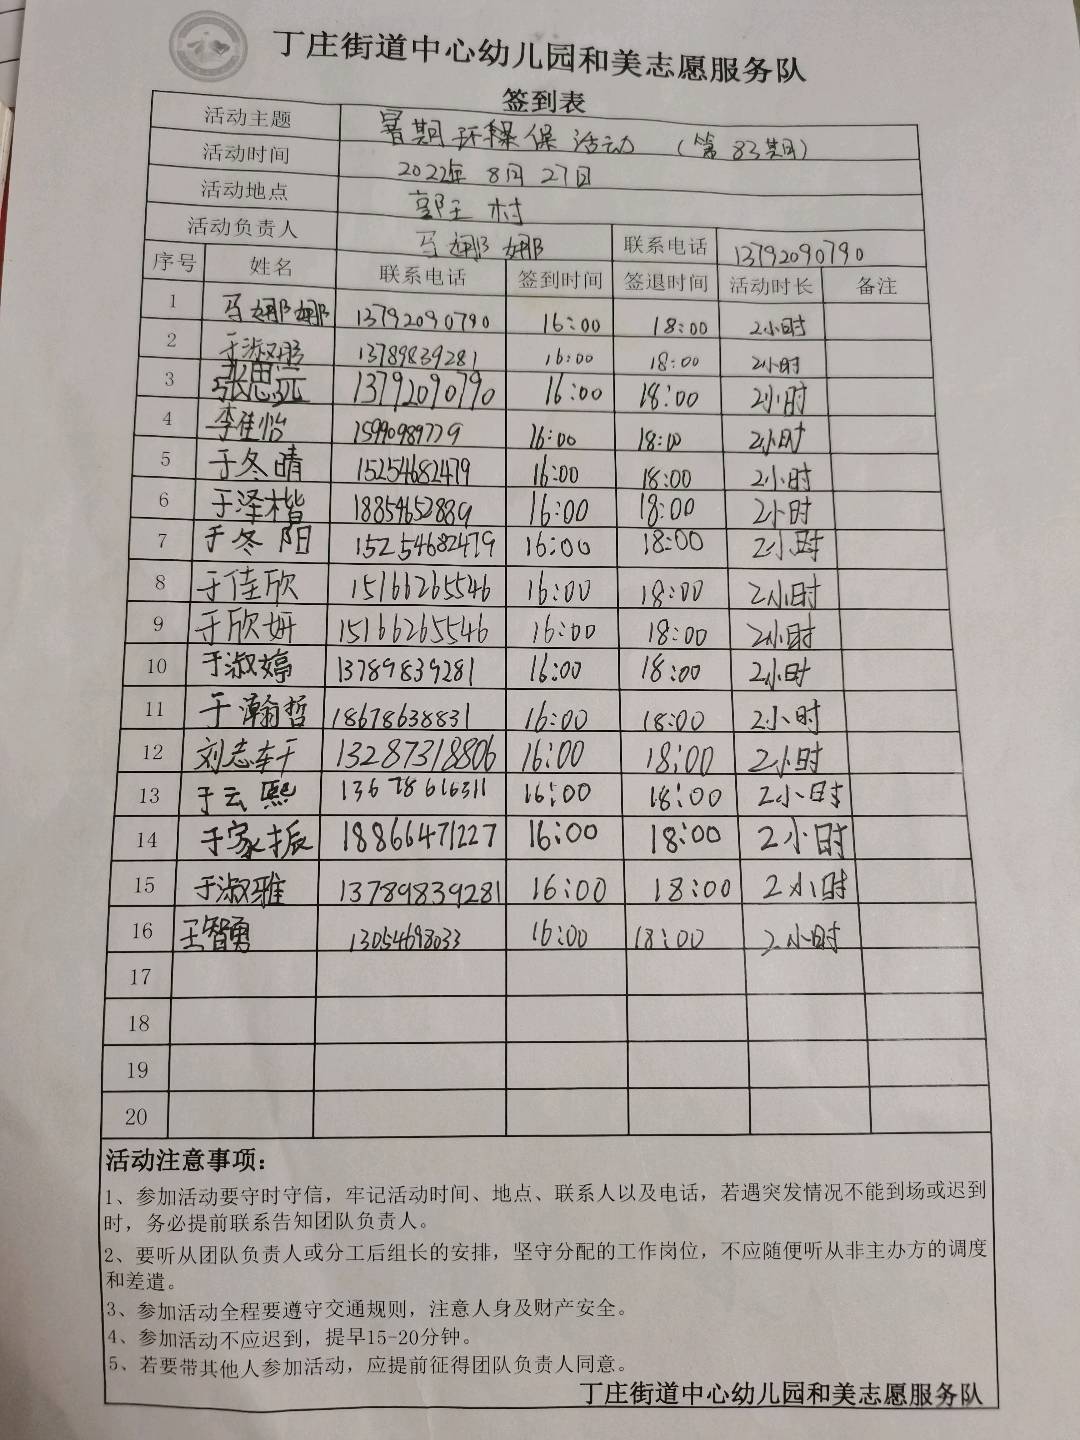 丁庄街道中心幼儿园和美志愿服务队
签到表
活动主题 暑期环保活动 (第83期)
活动时间 2022年8月27日
活动地点 郭王村
活动负责人 马娜娜 联系电话 13792090790
序号 姓名 联系电话 签到时间 签退时间 活动时长 备注
1 马娜娜 13792090790 16:00 18:00 2小时
2 于淑彤 13789839281 16:00 18:00 2小时
3 张思远 13792090790 16:00 18:00 2小时
4 李佳怡 15990989779 16:00 18:00 2小时
5 于冬晴 15254682479 16:00 18:00 2小时
6 于泽楷 18854652889 16:00 18:00 2小时
7 于冬阳 15254682479 16:00 18:00 2小时
8 于佳欣 15166265546 16:00 18:00 2小时
9 于欣妍 15166265546 16:00 18:00 2小时
10 于淑婷 13789839281 16:00 18:00 2小时
11 于瀚哲 18678638831 16:00 18:00 2小时
12 刘志轩 13287318806 16:00 18:00 2小时
13 于云熙 13678616311 16:00 18:00 2小时
14 于家振 18866471227 16:00 18:00 2小时
15 于淑雅 13789839281 16:00 18:00 2小时
16 王智勇 13054698033 16:00 18:00 2小时
17
18
19
20
活动注意事项：
1、参加活动要守时守信，牢记活动时间、地点、联系人以及电话，若遇突发情况不能到场或迟到
时，务必提前联系告知团队负责人。
2、要听从团队负责人或分工后组长的安排，坚守分配的工作岗位，不应随便听从非主办方的调度
和差遣。
3、参加活动全程要遵守交通规则，注意人身及财产安全。
4、参加活动不应迟到，提早15-20分钟。
5、若要带其他人参加活动，应提前征得团队负责人同意。
丁庄街道中心幼儿园和美志愿服务队